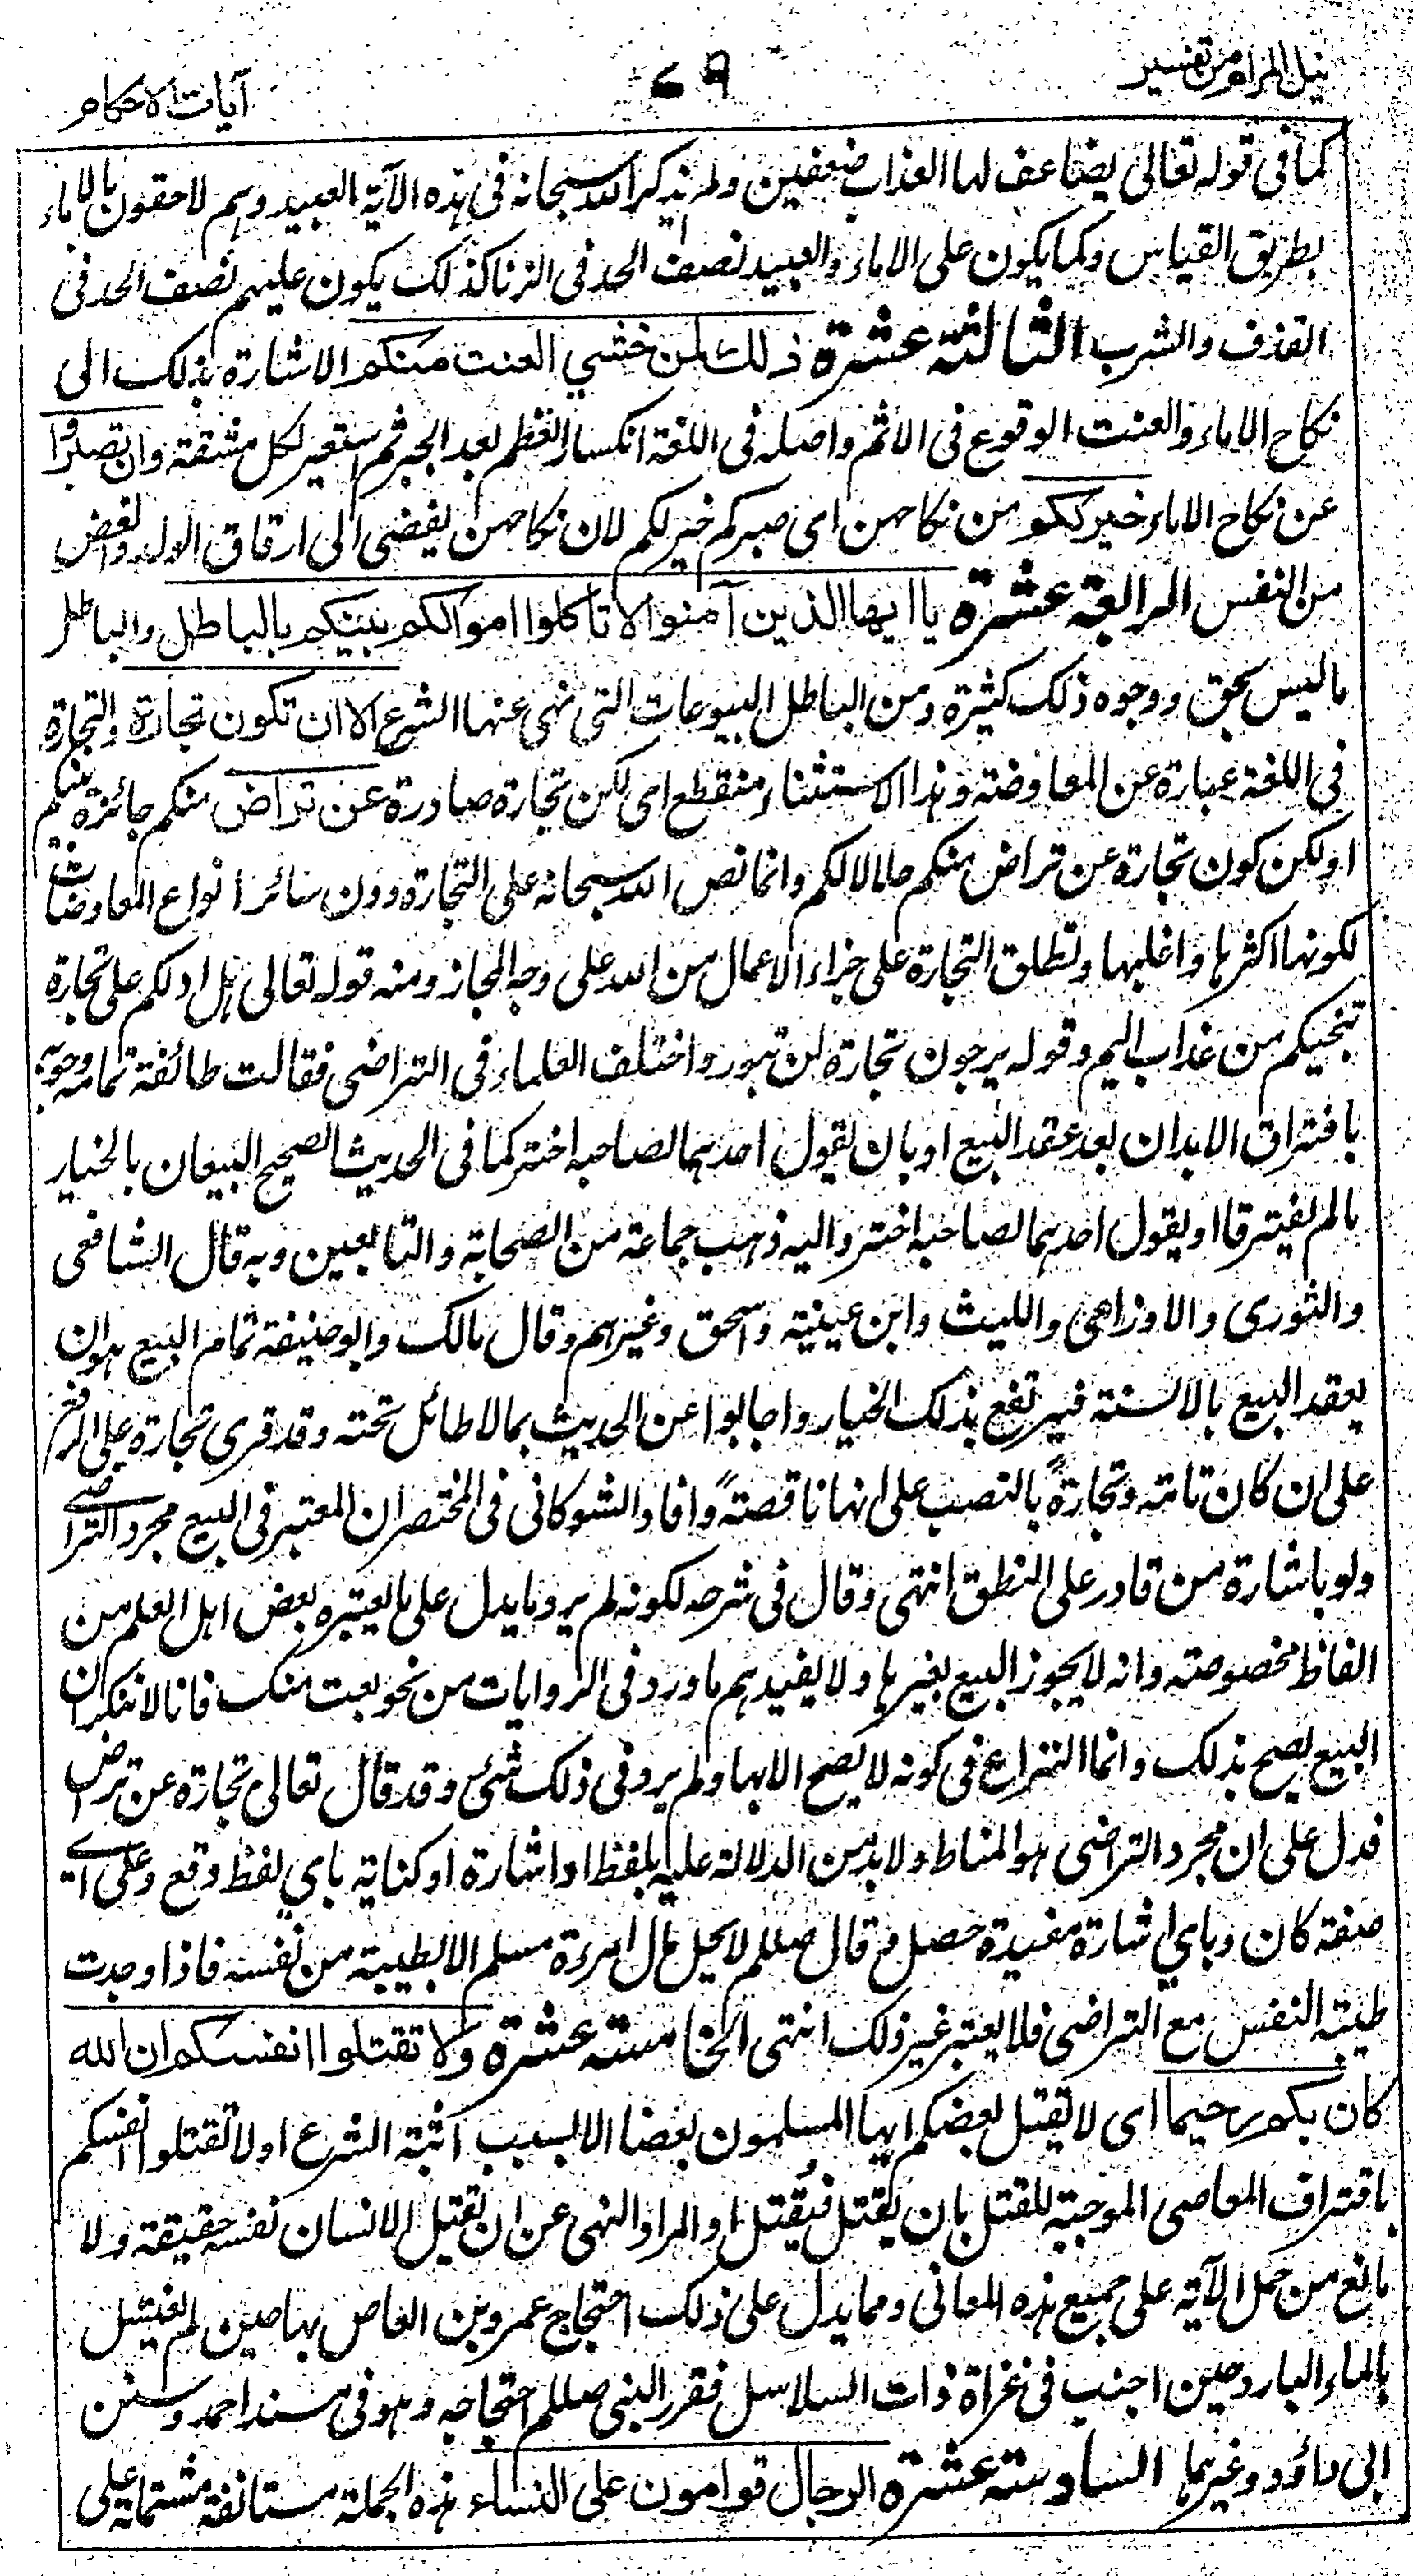 نيل المرام من تفسير
٧٩
آيات الاحكام
كما في قوله تعالى يضاعف لها العذاب ضعفين ولم يذكر الله سبحانه في هذه الآية العبيد وهم لاحقون بالاماء
بطريق القياس وكما يكون على الاماء والعبيد نصف الحد في الزنا كذلك يكون عليهم نصف الحد في
القذف والشرب الثالثة عشرة ذلك لمن خشي العنت منكم الاشارة بذلك الى
نكاح الاماء والعنت الوقوع في الاثم واصله في اللغة انكسار العظم بعد الجبر ثم استعير لكل مشقة وان تصبروا
عن نكاح الاماء خير لكم من نكاحهن اى صبركم خير لكم لان نكاحهن يفضى الى ارقاق الولد والغض
من النفس الرابعة عشرة يا ايها الذين آمنوا لا تاكلوا اموالكم بينكم بالباطل والباطل
ما ليس بحق ووجوه ذلك كثيرة ومن الباطل البيوعات التى نهى عنها الشرع الا ان تكون تجارة والتجارة
في اللغة عبارة عن المعاوضة وهذا الاستثناء منقطع اى لكن تجارة صادرة عن تراض منكم جائزة بينكم
او لكن كون تجارة عن تراض منكم حلالا لكم وانما نص الله سبحانه على التجارة دون سائر انواع المعاوضات
لكونها اكثرها واغلبها وتطلق التجارة على جزاء الاعمال من الله على وجه المجاز ومنه قوله تعالى هل ادلكم على تجارة
تنجيكم من عذاب اليم وقوله يرجون تجارة لن تبور واختلف العلماء في التراضى فقالت طائفة تمامه وجوبه
بافتراق الابدان بعد عقد البيع او بان يقول احدهما لصاحبه اختر كما في الحديث الصحيح البيعان بالخيار
ما لم يفترقا او يقول احدهما لصاحبه اختر واليه ذهب جماعة من الصحابة والتابعين وبه قال الشافعى
والثورى والاوزاعى والليث وابن عيينة واسحق وغيرهم وقال مالك وابو حنيفة تمام البيع هو ان
يعقد البيع بالالسنة فيرتفع بذلك الخيار واجابوا عن الحديث بما لا طائل تحته وقد قرى تجارة على الرفع
على ان كان تامة وتجارةً بالنصب على انها ناقصةً وافاد الشوكانى في المختصر ان المعتبر في البيع مجرد التراضى
ولو باشارة من قادر على النطق انتهى وقال في شرحه لكونه لم يرد ما يدل على ما اعتبره بعض اهل العلم من
الفاظ مخصوصة وانه لا يجوز البيع بغيرها ولا يفيدهم ما ورد في الروايات من نحو بعت منك فانا لا ننكر ان
البيع يصح بذلك وانما النزاع في كونه لا يصح الا بها ولم يرد في ذلك شئ وقد قال تعالى تجارة عن تراض
فدل على ان مجرد التراضى هو المناط ولا بد من الدلالة عليه بلفظ او اشارة او كناية باي لفظ وقع وعلى اي
صفة كان وباي اشارة مفيدة حصل وقال صللم لا يحل مال امرءة مسلم الا بطيبة من نفسه فاذا وجدت
طيبة النفس مع التراضى فلا يعتبر غير ذلك انتهى الخامسة عشرة ولا تقتلوا انفسكم ان الله
كان بكم رحيما اى لا يقتل بعضكم ايها المسلمون بعضا الا بسبب اثبته الشرع او لا تقتلوا انفسكم
باقتراف المعاصى الموجبة للقتل بان يقتل فيُقتل او المراد النهى عن ان يقتل الانسان نفسه حقيقة ولا
مانع من حمل الآية على جميع هذه المعانى ومما يدل على ذلك احتجاج عمرو بن العاص بها حين لم يغتسل
بالماء البارد حين اجنب في غزاة ذات السلاسل فقرر النبى صللم احتجاجه وهو في مسند احمد وسنن
ابى داؤد وغيرهما السادسة عشرة الرجال قوامون على النساء هذه الجملة مستانفة مشتملة على